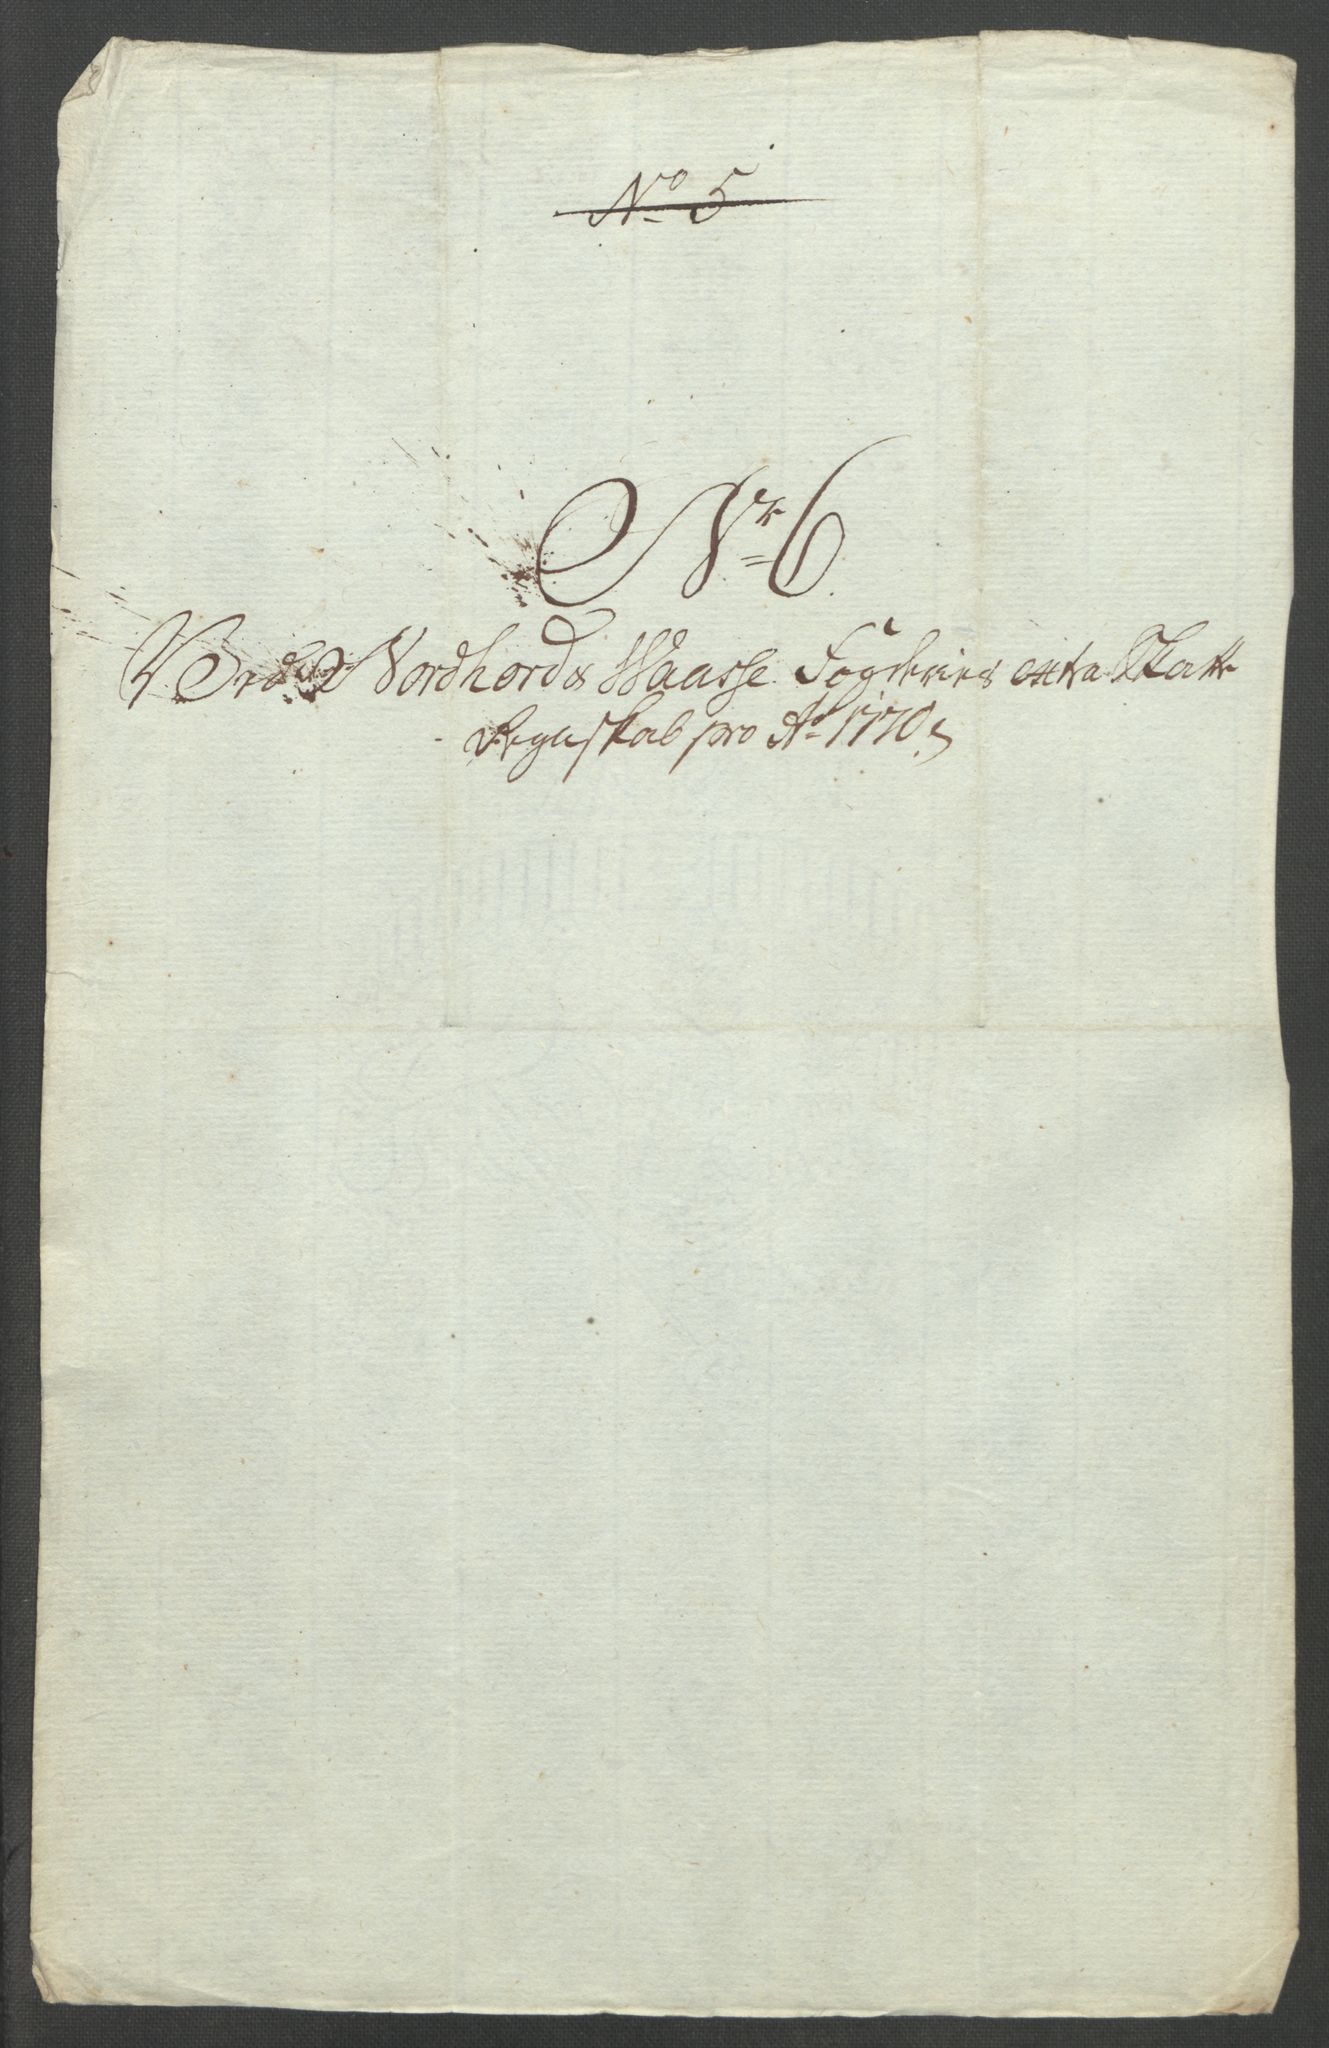 No 5
Nr 6
Ved Nordhord & Waasse Fogderies extra Skatt
Regnskab pro Ao 1770